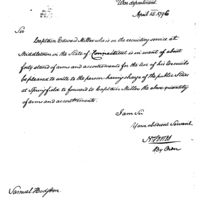 War department
April 12. 1796
Sir
Captain Edward Miller who is on the recruiting service at
Middletown in the State of Connecticut is in want of about
forty stands of arms and accoutrements for the use of his Recruits
be pleased to write to the person having charge of the public Stores
at Springfield to forward to Captain Miller the above quantity
of arms and accoutrements.
I am Sir
Your obedient Servant
Samuel Hodgdon